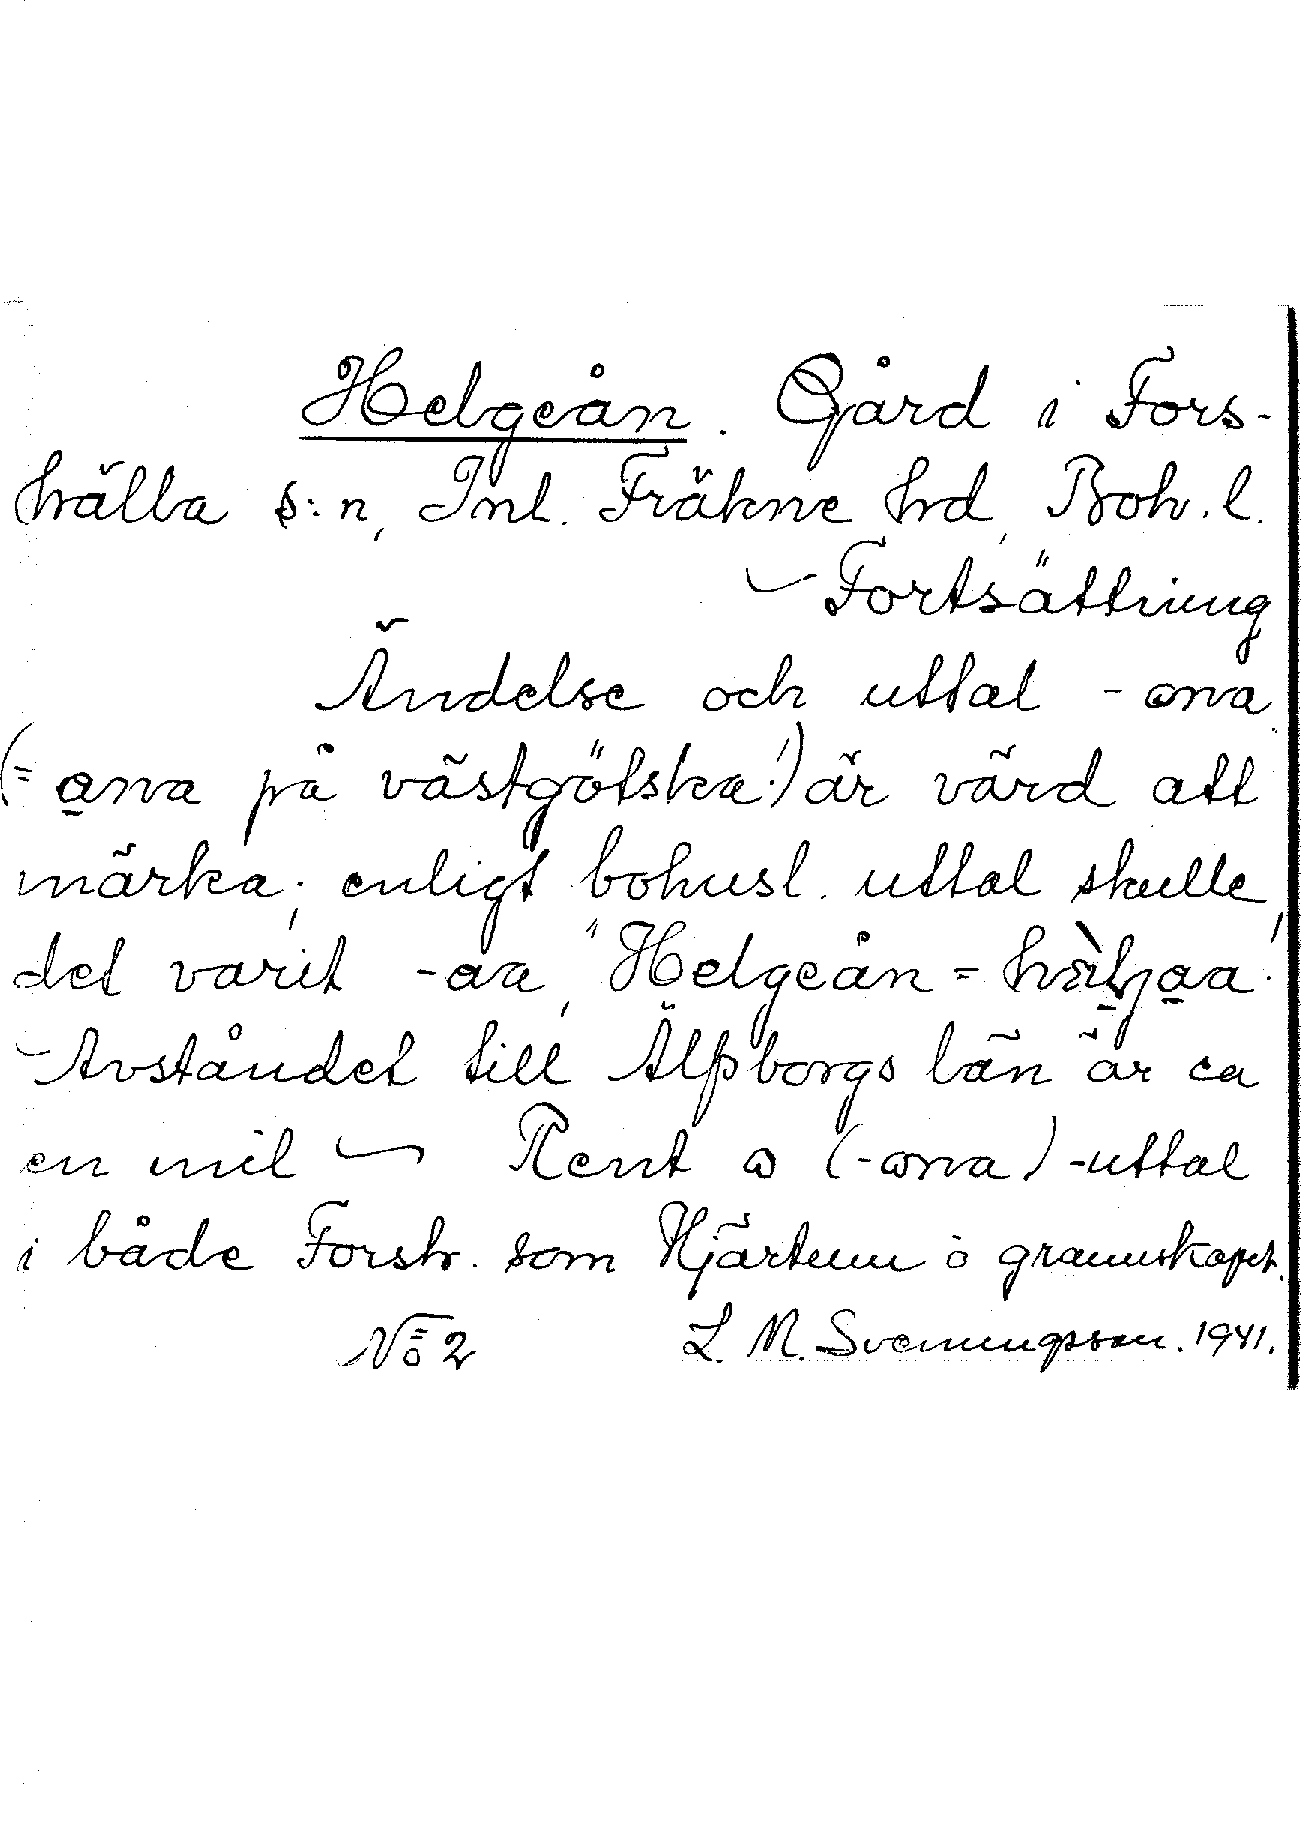 Helgeån. Gård i Fors-
hälla s:n, Inl. Fräkne hd, Boh. l.
– Fortsättning
Ändelse och uttal - ɷna
(= a̲na på västgötska!) är värd att
märka; enligt bohusl. uttal skulle
det varit -aa, "Helgeån =
– Avståndet till Älfborgs län är ca
en mil – Rent ɷ (-ɷna) -uttal
i både Forsh. som Hjärtum o grannskapet.
No 2 L. M. Svenungsson. 1941.